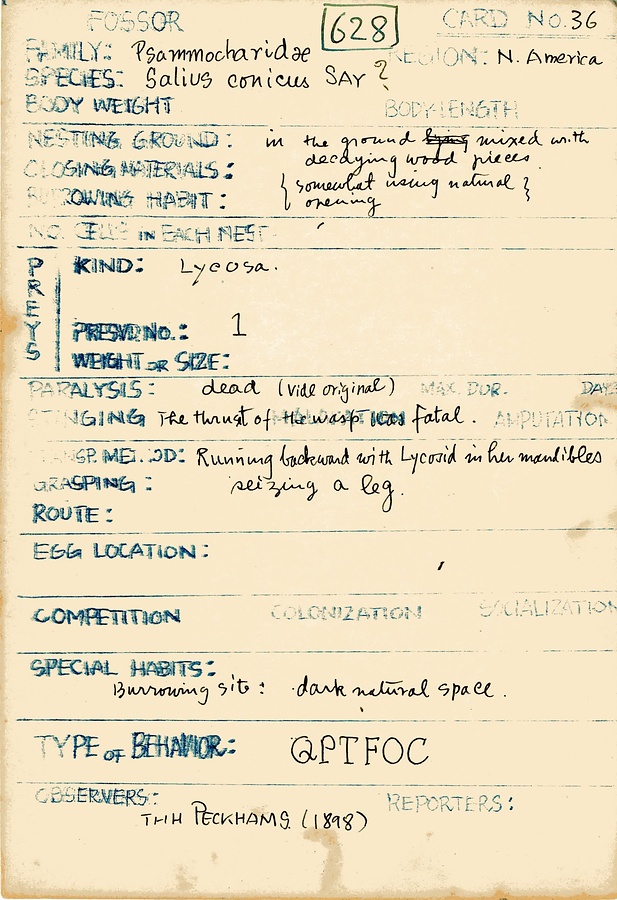 FOSSOR 628 CARD NO. 36
FAMILY: Psammocharidæ REGION: N. America
SPECIES: Salius conicus SAY ?
BODY WEIGHT BODY LENGTH
NESTING GROUND: in the ground lying mixed with
decaying wood pieces.
CLOSING MATERIALS:
BURROWING HABIT: { somewhat using natural }
opening
NO. CELLS IN EACH NEST
PREYS
KIND: Lycosa.
PRESVD. NO.: 1
WEIGHT OR SIZE:
PARALYSIS: dead (vide original) MAX. DUR. DAYS
STINGING The thrust of the wasp was fatal. AMPUTATION
TRANSP. METHOD: Running backward with Lycosid in her mandibles
GRASPING: seizing a leg.
ROUTE:
EGG LOCATION:
COMPETITION COLONIZATION SOCIALIZATION
SPECIAL HABITS:
Burrowing site: dark natural space.
TYPE OF BEHAVIOR: QPTFOC
OBSERVERS: REPORTERS:
THH PECKHAMS (1898)